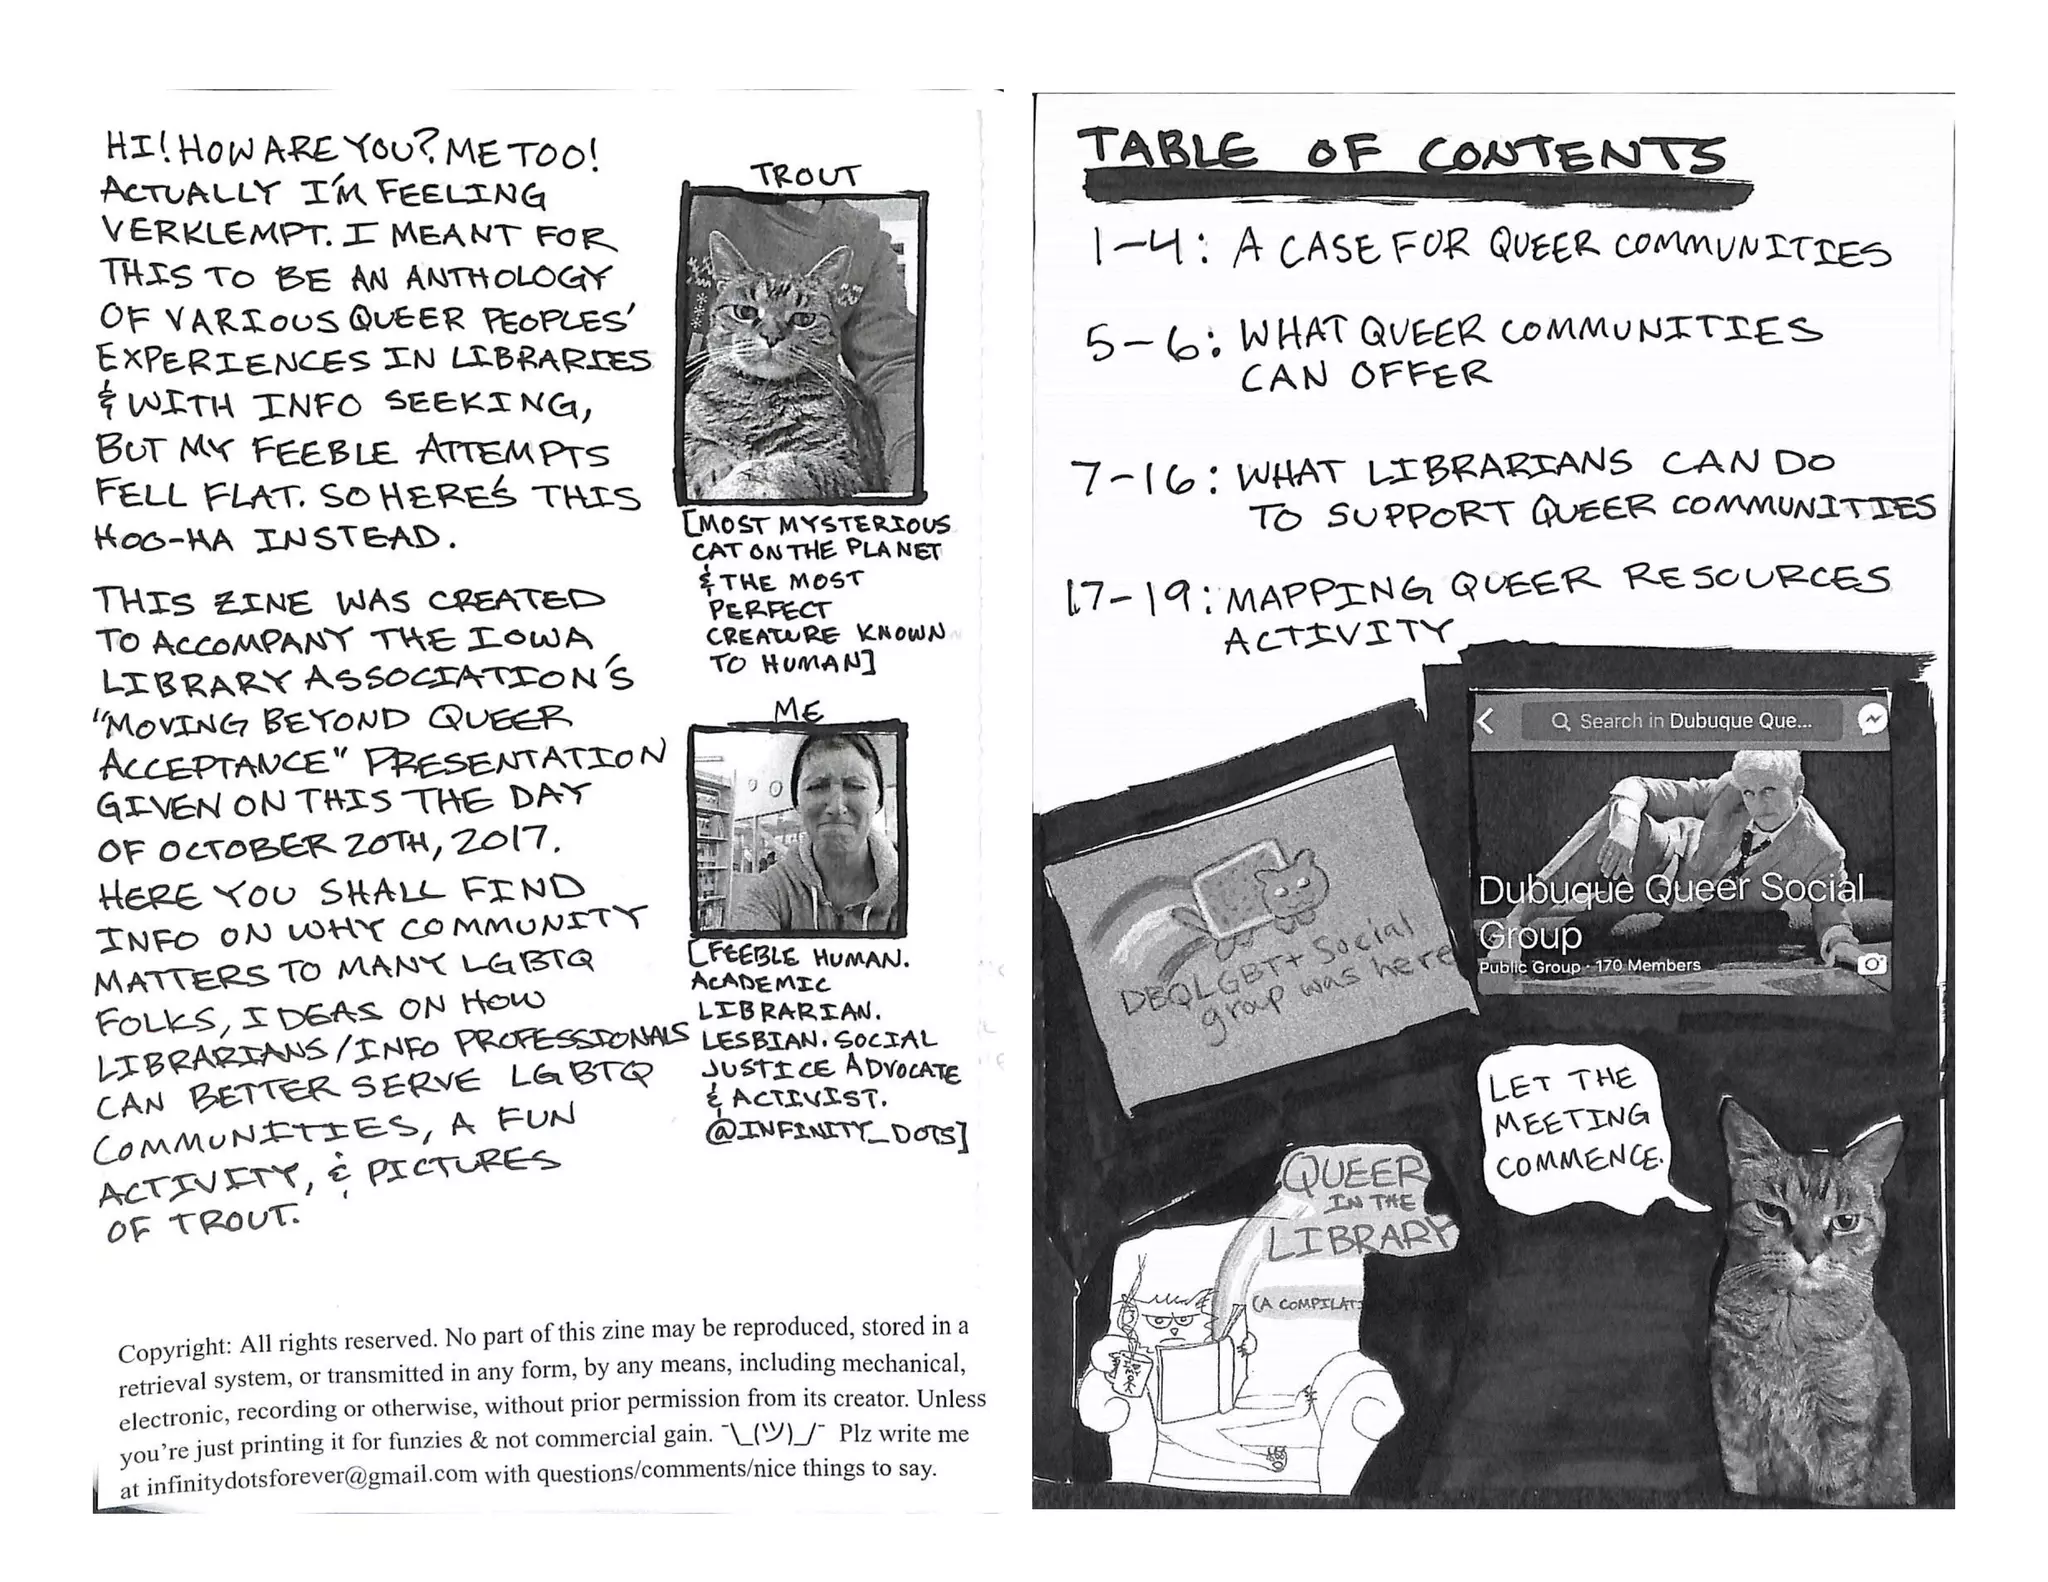 HI! HOW ARE YOU? ME TOO!
ACTUALLY I'M FEELING
VERKLEMPT. I MEANT FOR
THIS TO BE AN ANTHOLOGY
OF VARIOUS QUEER PEOPLES'
EXPERIENCES IN LIBRARIES
& WITH INFO SEEKING,
BUT MY FEEBLE ATTEMPTS
FELL FLAT. SO HERE'S THIS
HOO-HA INSTEAD.
THIS ZINE WAS CREATED
TO ACCOMPANY THE IOWA
LIBRARY ASSOCIATION'S
"MOVING BEYOND QUEER
ACCEPTANCE" PRESENTATION
GIVEN ON THIS THE DAY
OF OCTOBER 20TH, 2017.
HERE YOU SHALL FIND
INFO ON WHY COMMUNITY
MATTERS TO MANY LGBTQ
FOLKS, IDEAS ON HOW
LIBRARIANS/INFO PROFESSIONALS
CAN BETTER SERVE LGBTQ
COMMUNITIES, A FUN
ACTIVITY, & PICTURES
OF TROUT.
TROUT
[MOST MYSTERIOUS
CAT ON THE PLANET
& THE MOST
PERFECT
CREATURE KNOWN
TO HUMAN]
ME
[FEEBLE HUMAN.
ACADEMIC
LIBRARIAN.
LESBIAN. SOCIAL
JUSTICE ADVOCATE
& ACTIVIST.
@INFINITY_DOTS]
Copyright: All rights reserved. No part of this zine may be reproduced, stored in a
retrieval system, or transmitted in any form, by any means, including mechanical,
electronic, recording or otherwise, without prior permission from its creator. Unless
you're just printing it for funzies & not commercial gain. ¯\_(ツ)_/¯ Plz write me
at infinitydotsforever@gmail.com with questions/comments/nice things to say.
TABLE OF CONTENTS
1-4: A CASE FOR QUEER COMMUNITIES
5-6: WHAT QUEER COMMUNITIES
CAN OFFER
7-16: WHAT LIBRARIANS CAN DO
TO SUPPORT QUEER COMMUNITIES
17-19: MAPPING QUEER RESOURCES
ACTIVITY
Search in Dubuque Que...
Dubuque Queer Social
Group
Public Group · 170 Members
DBQLGBT+ Social
group was here
LET THE
MEETING
COMMENCE.
QUEER
IN THE
LIBRARY
(A COMPILATI